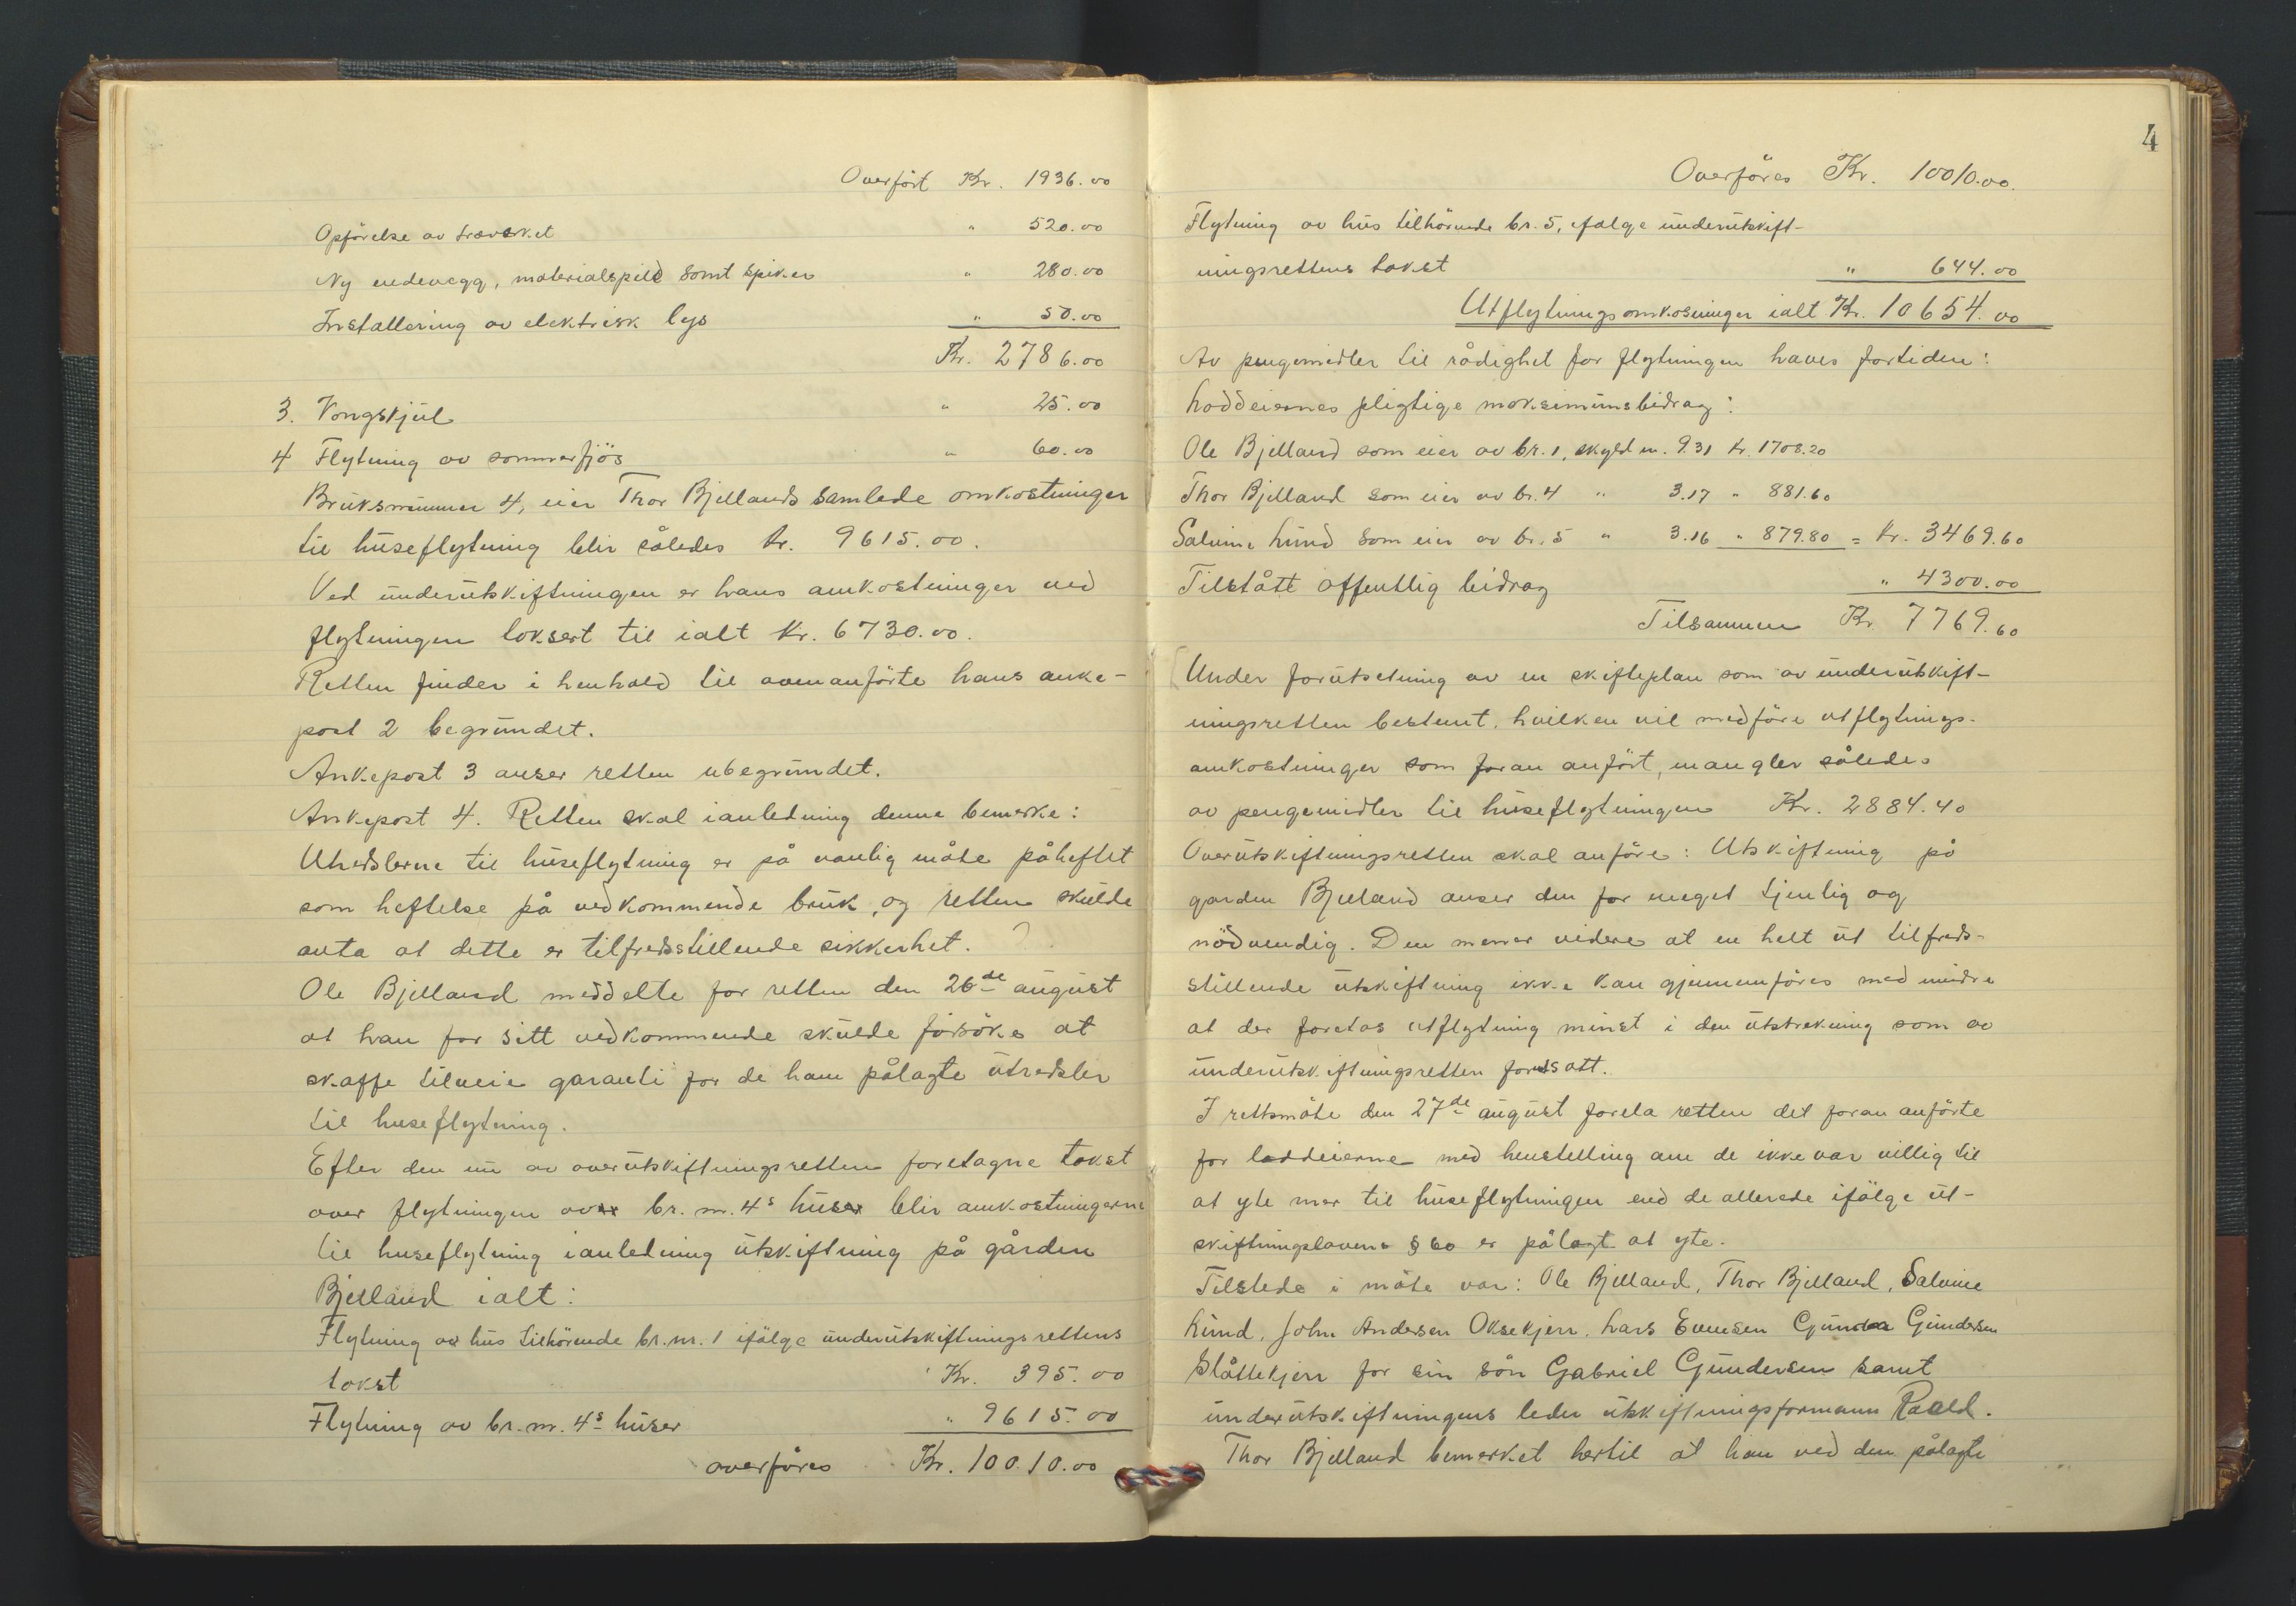 Overført Kr. 1936.00
Opförelse av træverket " 520.00
Ny endevegg, materialspild samt spiker " 280.00
Installering av elektrisk lys " 50.00
Kr. 2786.00
3. Vongskjul " 25.00
4 Flytning av sommerfjös " 60.00
Bruksnummer 4, eier Thor Bjellands samlede omkostninger
til huseflytning blir således kr. 9615.00.
Ved underutskiftningen er hans omkostninger ved
flytningen taksert til ialt kr. 6730.00.
Retten finder i henhold til ovenanförte hans anke-
post 2 begrundet.
Ankepost 3 anser retten ubegrundet.
Ankepost 4. Retten skal ianledning denne bemerke:
Utredslerne til huseflytning er på vanlig måte påheftet
som heftelse på vedkommende bruk, og retten skulde
anta at dette er tilfredsstillende sikkerhet.
Ole Bjelland meddelte for retten den 26de august
at han for sitt vedkommende skulde forsöke at
skaffe tilveie garanti for de ham pålagte utredsler
til huseflytning.
Efter den nu av overutskiftningsretten foretagne takst
over flytningen av br. nr. 4s huser blir omkostningerne
til huseflytning ianledning utskiftning på gården
Bjelland ialt:
Flytning av hus tilhörende br. nr. 1 ifölge underutskiftningsrettens
takst Kr. 395.00
Flytning av br. nr. 4s huser " 9615.00
overföres Kr. 10010.00
4
Overföres Kr. 10010.00.
Flytning av hus tilhörende br. 5, ifølge underutskift-
ningsrettens takst " 644.00
Utflytningsomkosninger ialt Kr. 10654.00
Av pengemidler til rådighet for flytningen haves fortiden:
Loddeiernes pligtige maksimumsbidrag:
Ole Bjelland som eier av br. 1, skyld m. 9.31 kr. 1708.20
Thor Bjelland som eier av br. 4 " 3.17 " 881.60
Salvine Lund som eier av br. 5 " 3.16 " 879.80 = kr. 3469.60
Tilstått offentlig bidrag " 4300.00
Tilsammen Kr. 7769.60
Under forutsetning av en skifteplan som av underutskift-
ningsretten bestemt, hvilken vil medföre utflytnings-
omkostninger som foran anfört, mangler således
av pengemidler til huseflytningen Kr. 2884.40
Overutskiftningsretten skal anföre: Utskiftning på
garden Bjelland anser den for meget tjenlig og
nödvendig. Den mener videre at en helt ut tilfreds-
stillende utskiftning ikke kan gjennemföres med mindre
at der foretas utflytning minst i den utstrekning som av
underutskiftningsretten forutsatt.
I rettsmöte den 27de august forela retten det foran anförte
for loddeierne med henstelling om de ikke var villig til
at yte mer til huseflytningen end de allerede ifölge ut-
skiftningslovens § 60 er pålagt at yte.
Tilstede i möte var: Ole Bjelland, Thor Bjelland, Salvine
Lund, John Andersen Oksekjerr, Lars Evensen Gundersen
Slåttekjerr for sin sön Gabriel Gundersen samt
underutskiftningens leder utskiftningsformann Roald.
Thor Bjelland bemerket hertil at han ved den pålagte